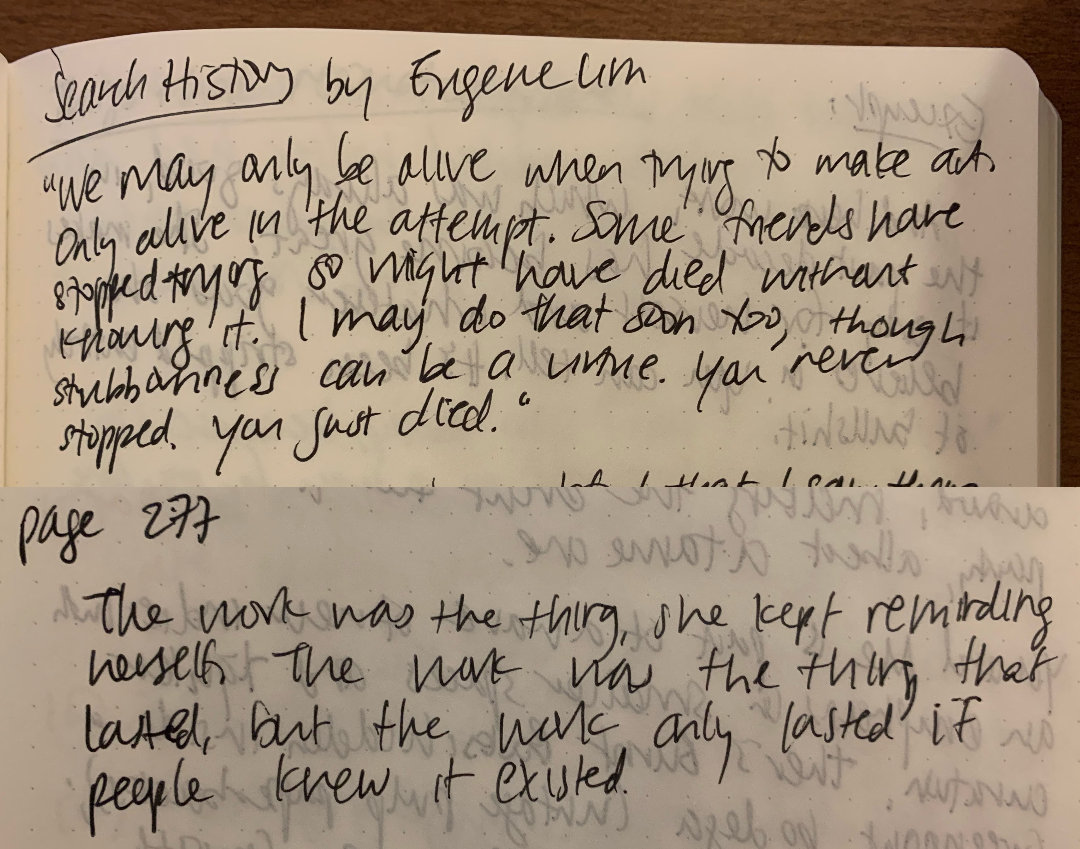 Search History by Eugene Lim
"We may only be alive when trying to make art.
Only alive in the attempt. Some friends have
stopped trying so might have died without
knowing it. I may do that soon too, though
stubbornness can be a virtue. You never
stopped. You just died."
that I saw
page 277
The work was the thing, she kept reminding
herself. The work was the thing that
lasted, but the work only lasted if
people knew it existed.